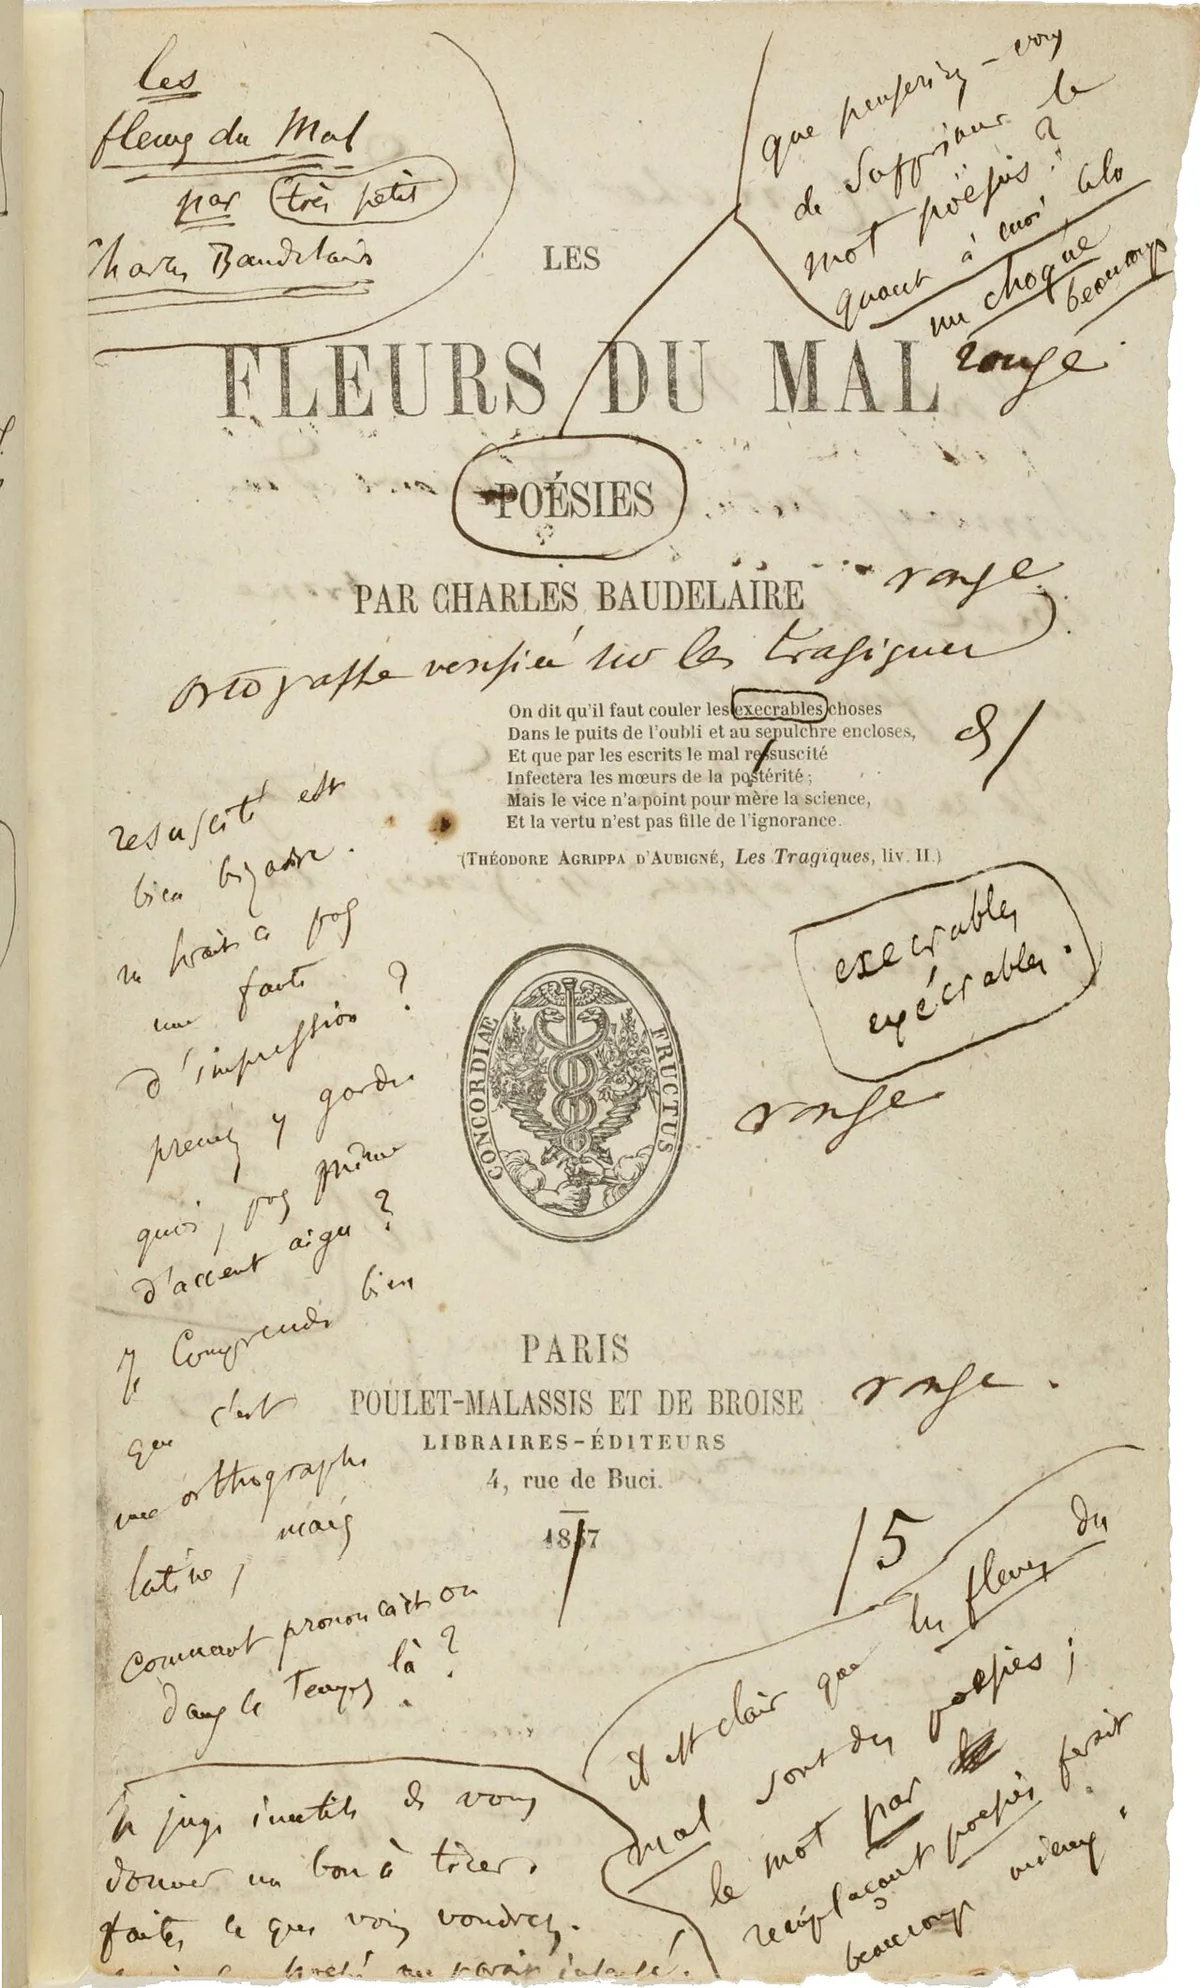 les
fleurs du Mal
par très petit
Charles Baudelaire
que penseriez-vous
de supprimer le
mot poësies ?
quant à moi cela
me choque
beaucoup
rouge
LES
FLEURS DU MAL
POÉSIES
PAR CHARLES BAUDELAIRE
rouge
ortographe verifiée sur les tragiques
On dit qu'il faut couler les execrables choses
Dans le puits de l'oubli et au sepulchre encloses,
Et que par les escrits le mal resuscité
Infectera les mœurs de la postérité ;
Mais le vice n'a point pour mère la science,
Et la vertu n'est pas fille de l'ignorance.
(THÉODORE AGRIPPA D'AUBIGNÉ, Les Tragiques, liv. II.)
resuscité est
bien bizarre.
ne serait-ce pas
une faute
d'impression ?
prenez y garde
quoi, pas même
d'accent aigu ?
Je comprends bien
que c'est
une orthographe
latine, mais
comment prononçait on
dans ce temps là ?
execrables
exécrables.
rouge
CONCORDIAE FRUCTUS
PARIS
POULET-MALASSIS ET DE BROISE
rouge.
LIBRAIRES-ÉDITEURS
4, rue de Buci.
1857
/5
il est clair que les fleurs du
mal sont des poësies ;
le mot par
remplaçant poësies ferait
beaucoup mieux.
Je juge inutile de vous
donner un bon à tirer.
faites ce que vous voudrez.